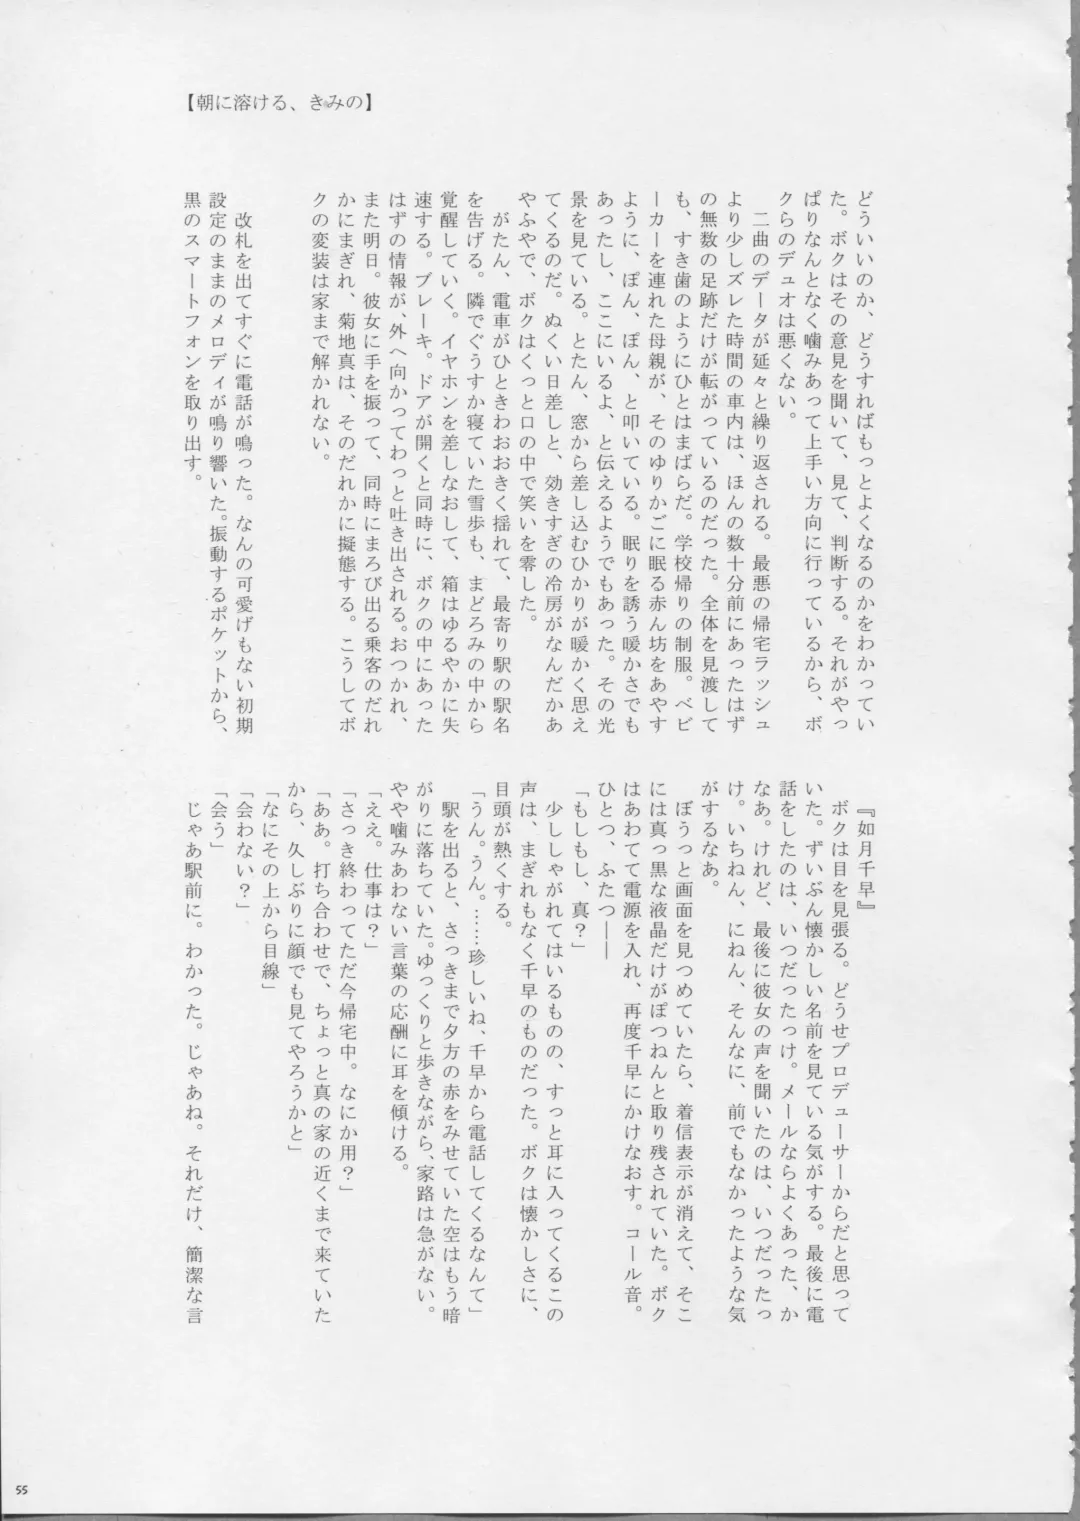 【朝に溶ける、きみの】
どういいのか、どうすればもっとよくなるのかをわかってい
た。ボクはその意見を聞いて、見て、判断する。それがやっ
ぱりなんとなく噛みあって上手い方向に行っているから、ボ
クらのデュオは悪くない。
二曲のデータが延々と繰り返される。最悪の帰宅ラッシュ
より少しズレた時間の車内は、ほんの数十分前にあったはず
の無数の足跡だけが転がっているのだった。全体を見渡して
も、すき歯のようにひとはまばらだ。学校帰りの制服。ベビ
ーカーを連れた母親が、そのゆりかごに眠る赤ん坊をあやす
ように、ぽん、ぽん、と叩いている。眠りを誘う暖かさでも
あったし、ここにいるよ、と伝えるようでもあった。その光
景を見ている。とたん、窓から差し込むひかりが暖かく思え
てくるのだ。ぬくい日差しと、効きすぎの冷房がなんだかあ
やふやで、ボクはくっと口の中で笑いを零した。
がたん、電車がひときわおおきく揺れて、最寄り駅の駅名
を告げる。隣でぐうすか寝ていた雪歩も、まどろみの中から
覚醒していく。イヤホンを差しなおして、箱はゆるやかに失
速する。ブレーキ。ドアが開くと同時に、ボクの中にあった
はずの情報が、外へ向かってわっと吐き出される。おつかれ、
また明日。彼女に手を振って、同時にまろび出る乗客のだれ
かにまぎれ、菊地真は、そのだれかに擬態する。こうしてボ
クの変装は家まで解かれない。
改札を出てすぐに電話が鳴った。なんの可愛げもない初期
設定のままのメロディが鳴り響いた。振動するポケットから、
黒のスマートフォンを取り出す。
『如月千早』
ボクは目を見張る。どうせプロデューサーからだと思って
いた。ずいぶん懐かしい名前を見ている気がする。最後に電
話をしたのは、いつだったっけ。メールならよくあった、か
なあ。けれど、最後に彼女の声を聞いたのは、いつだったっ
け。いちねん、にねん、そんなに、前でもなかったような気
がするなあ。
ぼうっと画面を見つめていたら、着信表示が消えて、そこ
には真っ黒な液晶だけがぽつねんと取り残されていた。ボク
はあわてて電源を入れ、再度千早にかけなおす。コール音。
ひとつ、ふたつ――
「もしもし、真？」
少ししゃがれてはいるものの、すっと耳に入ってくるこの
声は、まぎれもなく千早のものだった。ボクは懐かしさに、
目頭が熱くする。
「うん。うん。……珍しいね、千早から電話してくるなんて」
駅を出ると、さっきまで夕方の赤をみせていた空はもう暗
がりに落ちていた。ゆっくりと歩きながら、家路は急がない。
やや噛みあわない言葉の応酬に耳を傾ける。
「ええ。仕事は？」
「さっき終わってただ今帰宅中。なにか用？」
「ああ。打ち合わせで、ちょっと真の家の近くまで来ていた
から、久しぶりに顔でも見てやろうかと」
「なにその上から目線」
「会わない？」
「会う」
じゃあ駅前に。わかった。じゃあね。それだけ、簡潔な言
55